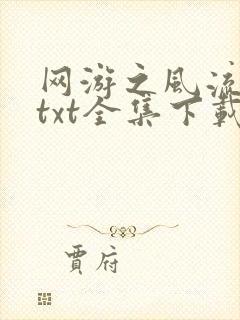 网游之风流
txt全集下载
贾府